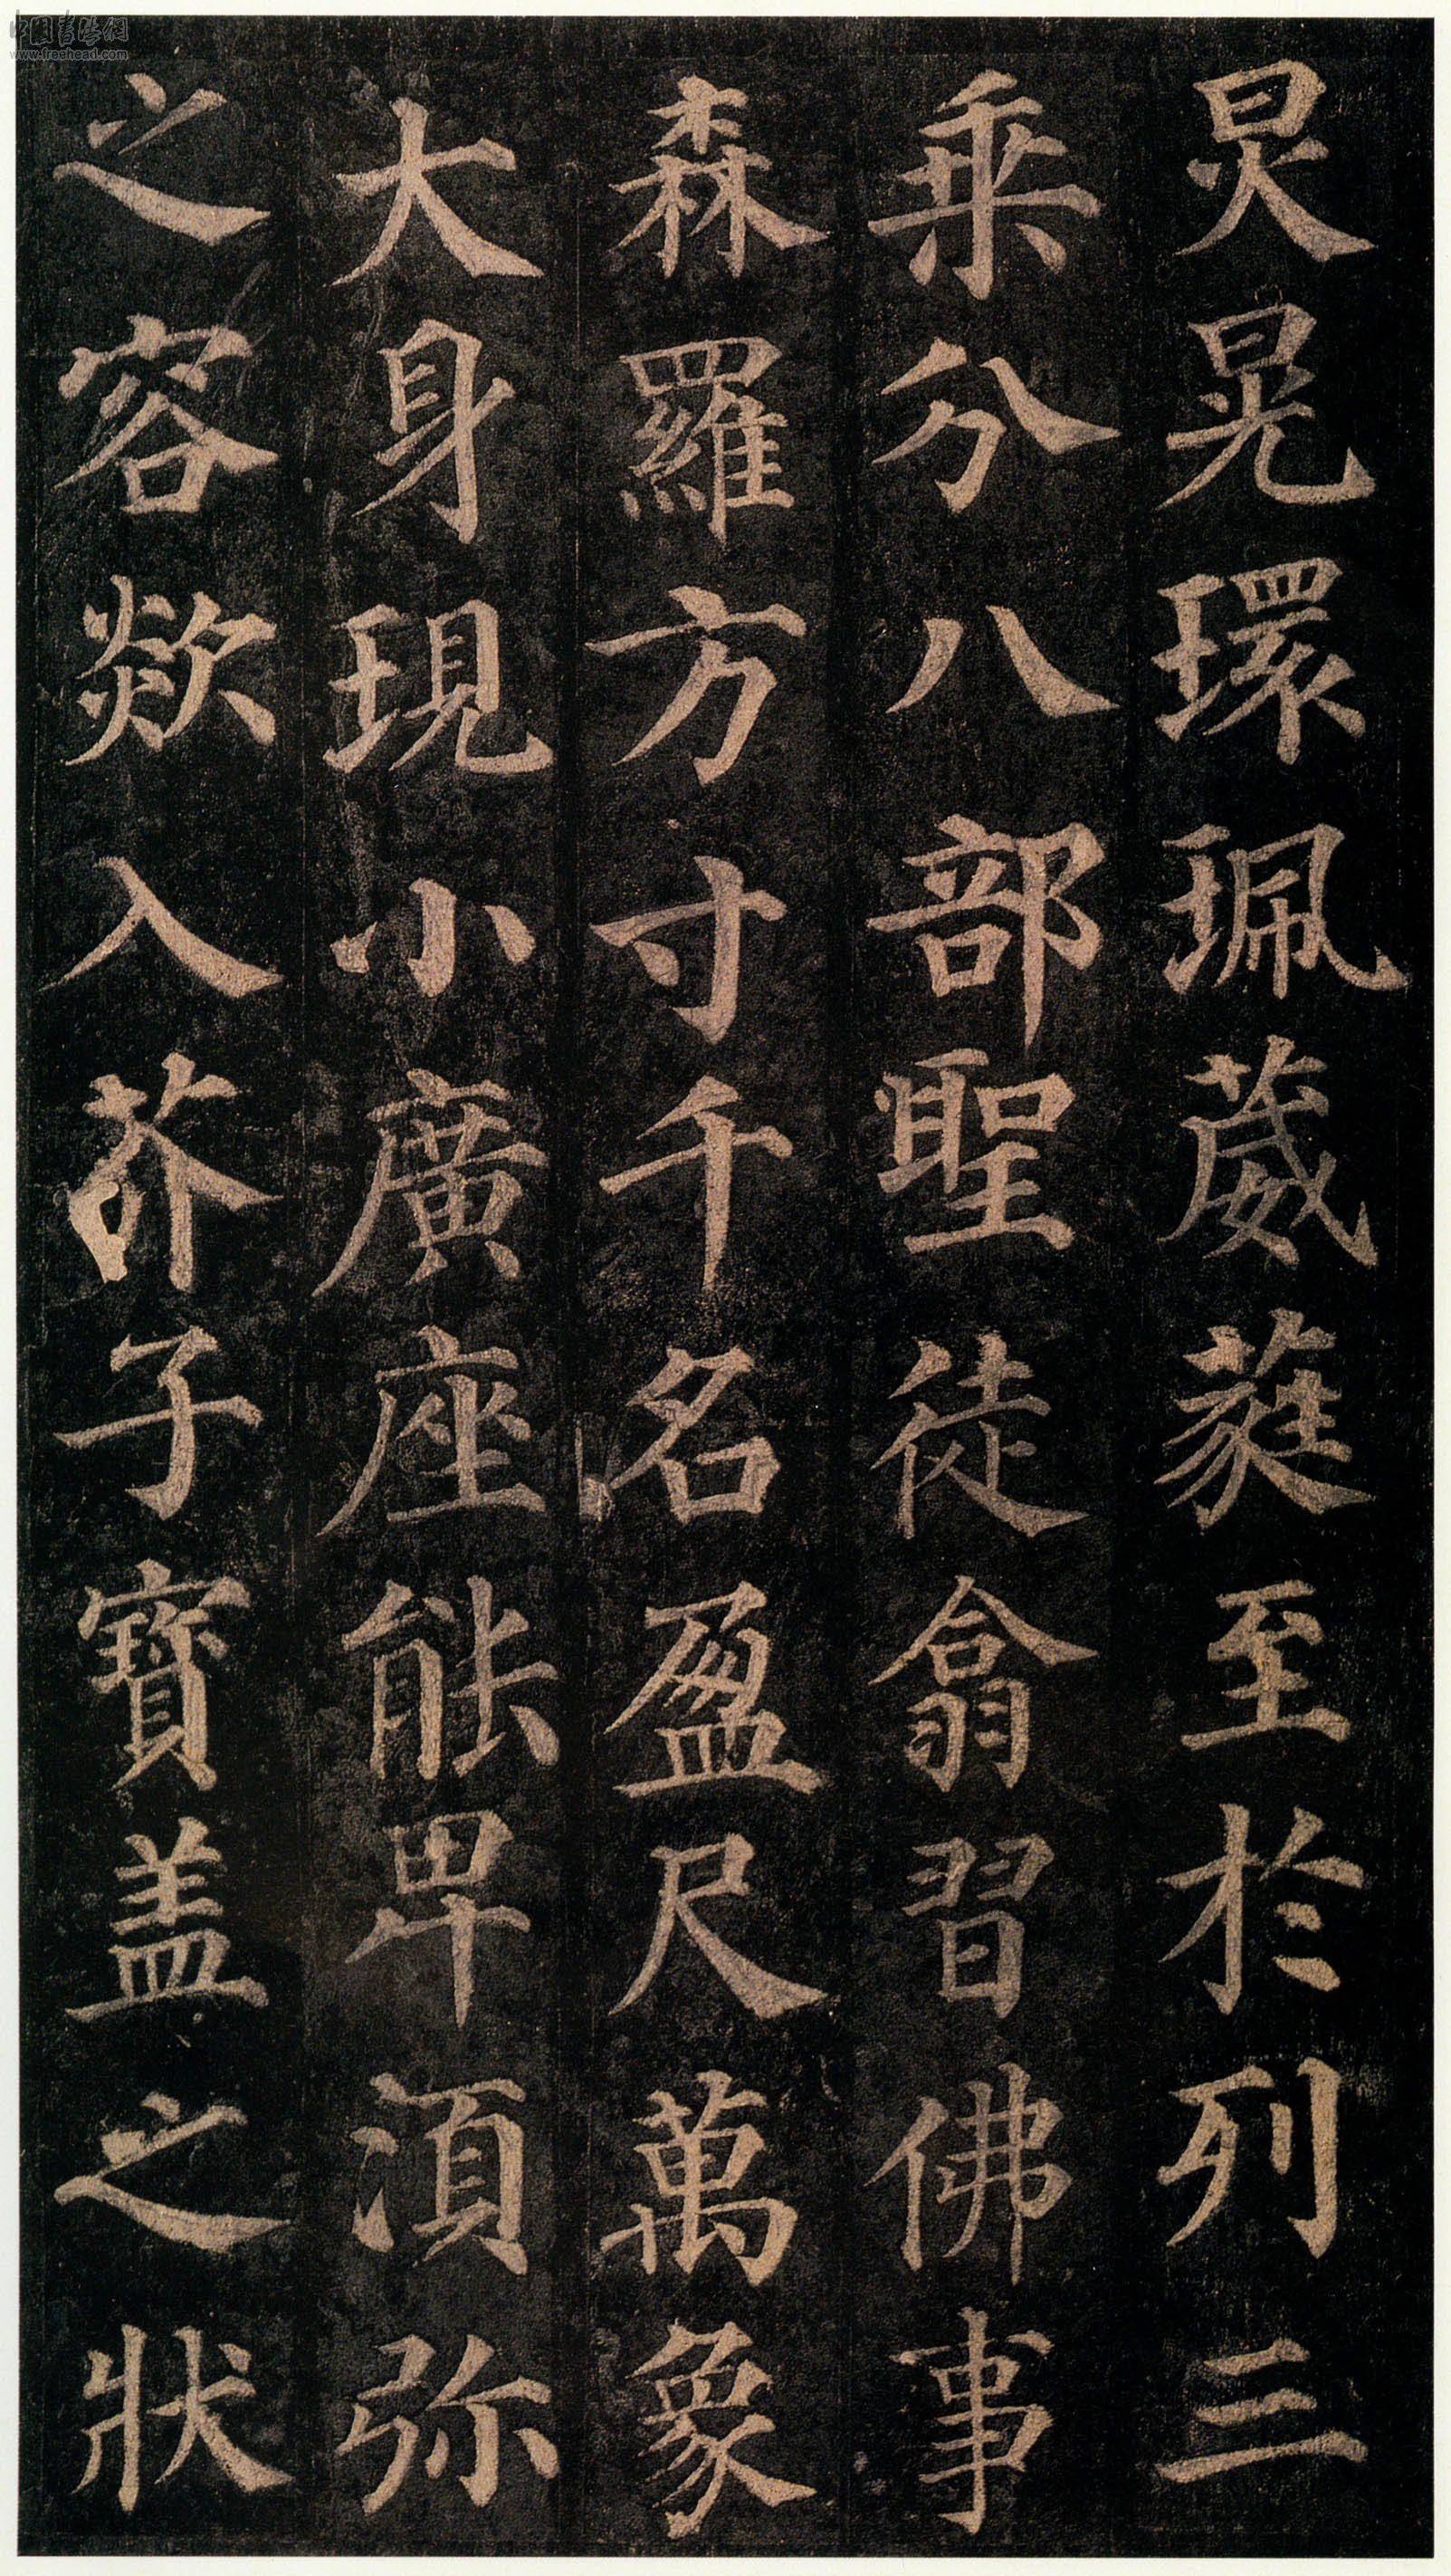 炅晃環珮葳蕤至於列三
乘分八部聖徒翕習佛事
森羅方寸千名盈尺萬象
大身現小廣座能卑須弥
之容歘入芥子寶盖之狀
中国书法網
www.freehead.com